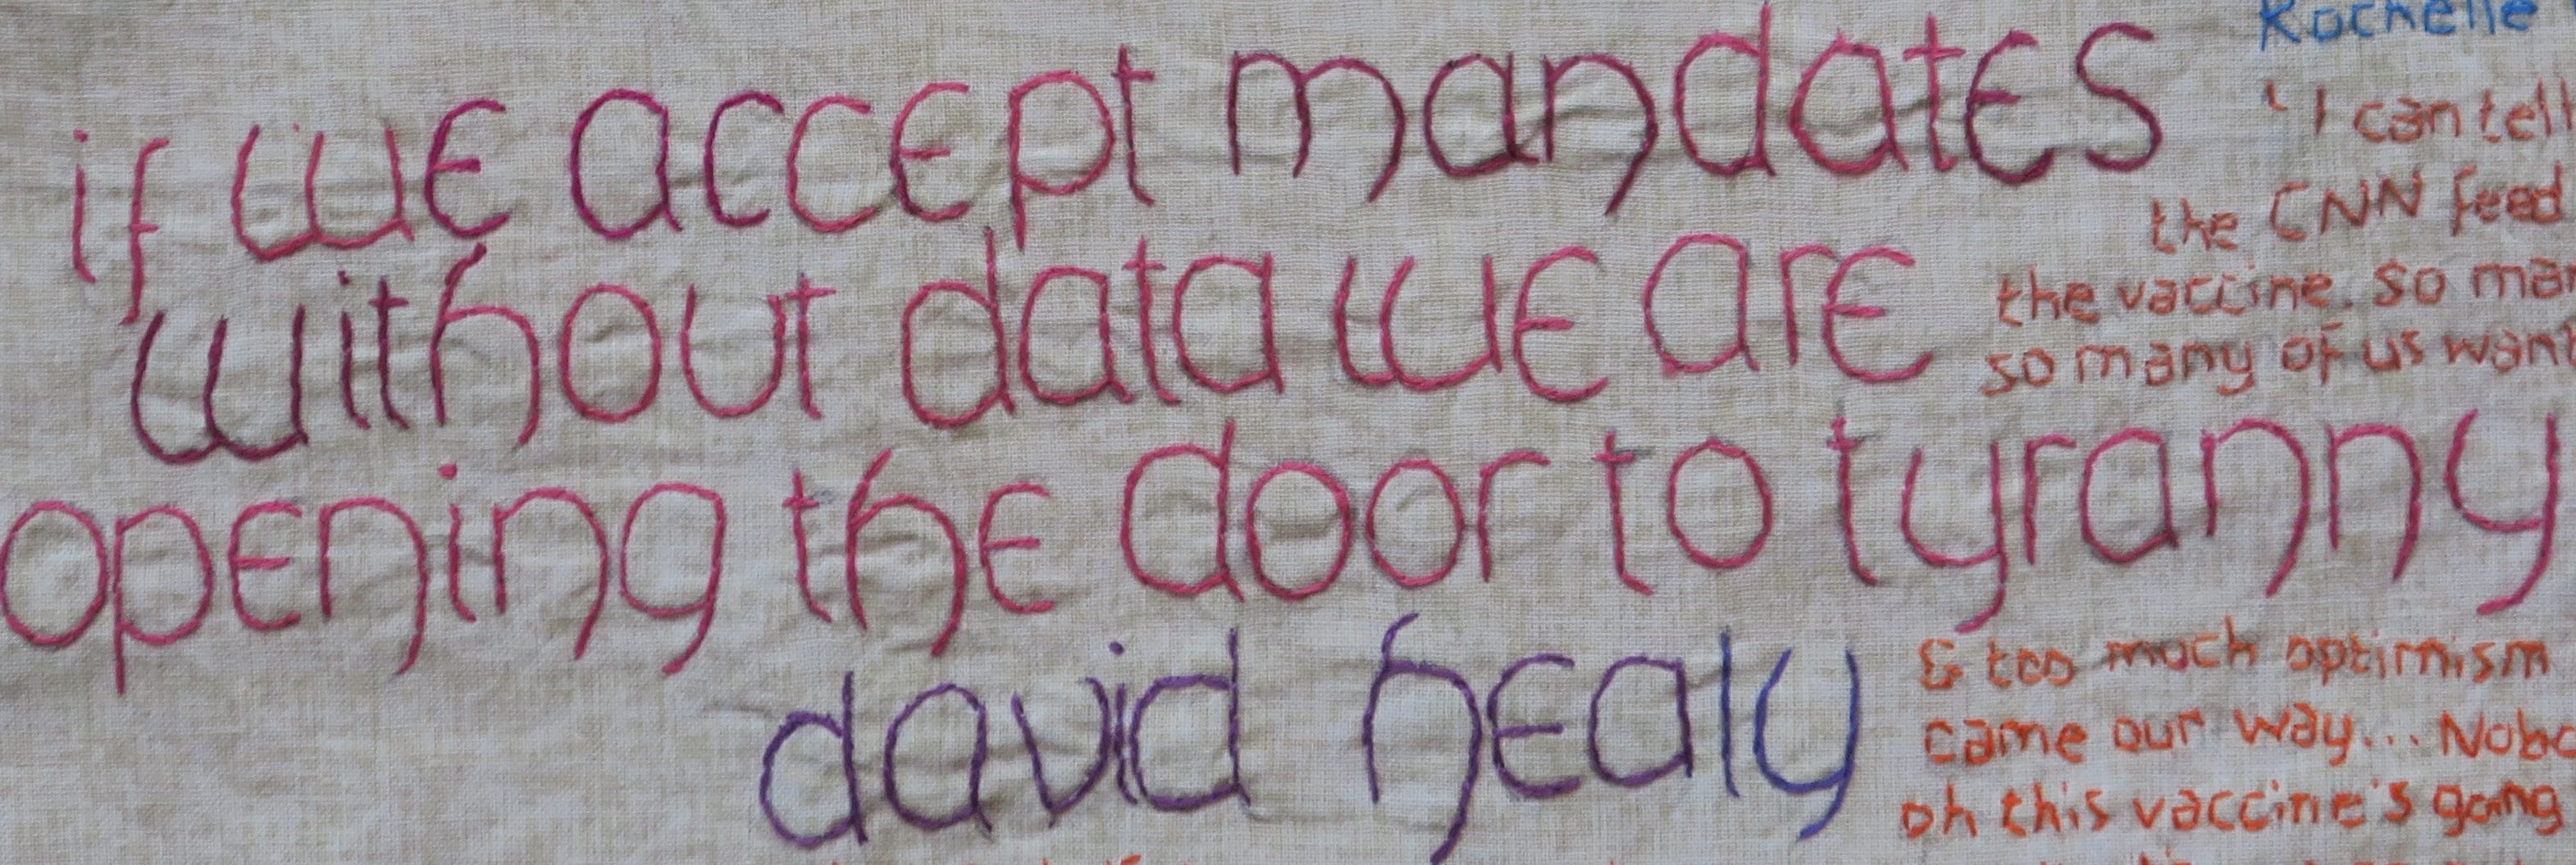 if we accept mandates
without data we are
opening the door to tyranny
david healy
Rochelle
'I can tell
the CNN feed
the vaccine. so
so many of us want
& too much optimism
came our way...
oh this vaccine's going